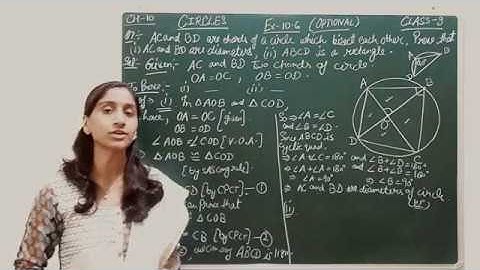 CH-10 CIRCLES Ex-10.6 (OPTIONAL) CLASS-9
AC and BD are chords of a circle which bisect each other, Prove that
(i) AC and BD are diameters, (ii) ABCD is a rectangle.
Given:- AC and BD two chords of circle
OA = OC, OB = OD.
To Prove:- (i) — (ii) —
(i) In △AOB and △COD,
have, OA = OC [given]
OB = OD
∠AOB = ∠COD [V.O.A.]
△AOB ≅ △COD
[by SAS cong rule]
[by CPCT] — ①
Prove that
≅ △COB
= CB [by CPCT] — ②
ABCD is
So ⇒ ∠A = ∠C
and ∠B = ∠D.
Since ABCD is
cyclic quad.
⇒ ∠A + ∠C = 180° and ∠B + ∠D = 180°
⇒ ∠A + ∠A = 180° and ∠B + ∠B = 180°
⇒ ∠A = 90° ⇒ ∠B = 90°
⇒ AC and BD are diameters of circle
(ii)
A
B
O
D
C